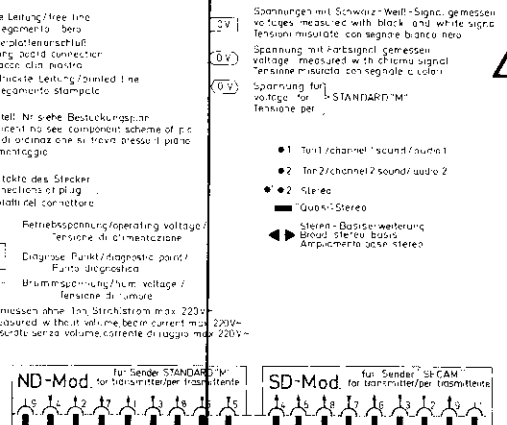 e Leitung/free line
egamento libero
erplattenanschluß
ng board connection
acco alla piastra
druckte Leitung/printed line
egamento stampato
tell Nr siehe Bestückungsplan
ident no see component scheme of p.c
di ordinazione si trova presso il piano
montaggio
takte des Stecker
nections of plug
tatti del connettore
Betriebsspannung/operating voltage/
Tensione di alimentazione
Diagnose Punkt/diagnostic point/
Punto diagnostico
Brummspannung/hum voltage/
Tensione di rumore
messen ohne Ton, Strahlstrom max 220V~
easured without volume, beam current max 220V~
surate senza volume, corrente di raggio max 220V~
0V
Spannungen mit Schwarz-Weiß-Signal gemessen
voltages measured with black and white signal
Tensioni misurate con segnale bianco nero
0V
Spannung mit Farbsignal gemessen
voltage measured with chroma signal
Tensione misurata con segnale a colori
0V
Spannung für
voltage for STANDARD "M"
Tensione per
1 Ton1/channel 1 sound/audio 1
2 Ton2/channel 2 sound/audio 2
2 Stereo
"Quasi"-Stereo
Stereo-Basiserweiterung
Broad stereo basis
Ampliamento base stereo
ND-Mod. für Sender STANDARD "M"
for transmitter/per trasmittente
SD-Mod. für Sender "SECAM"
for transmitter/per trasmittente